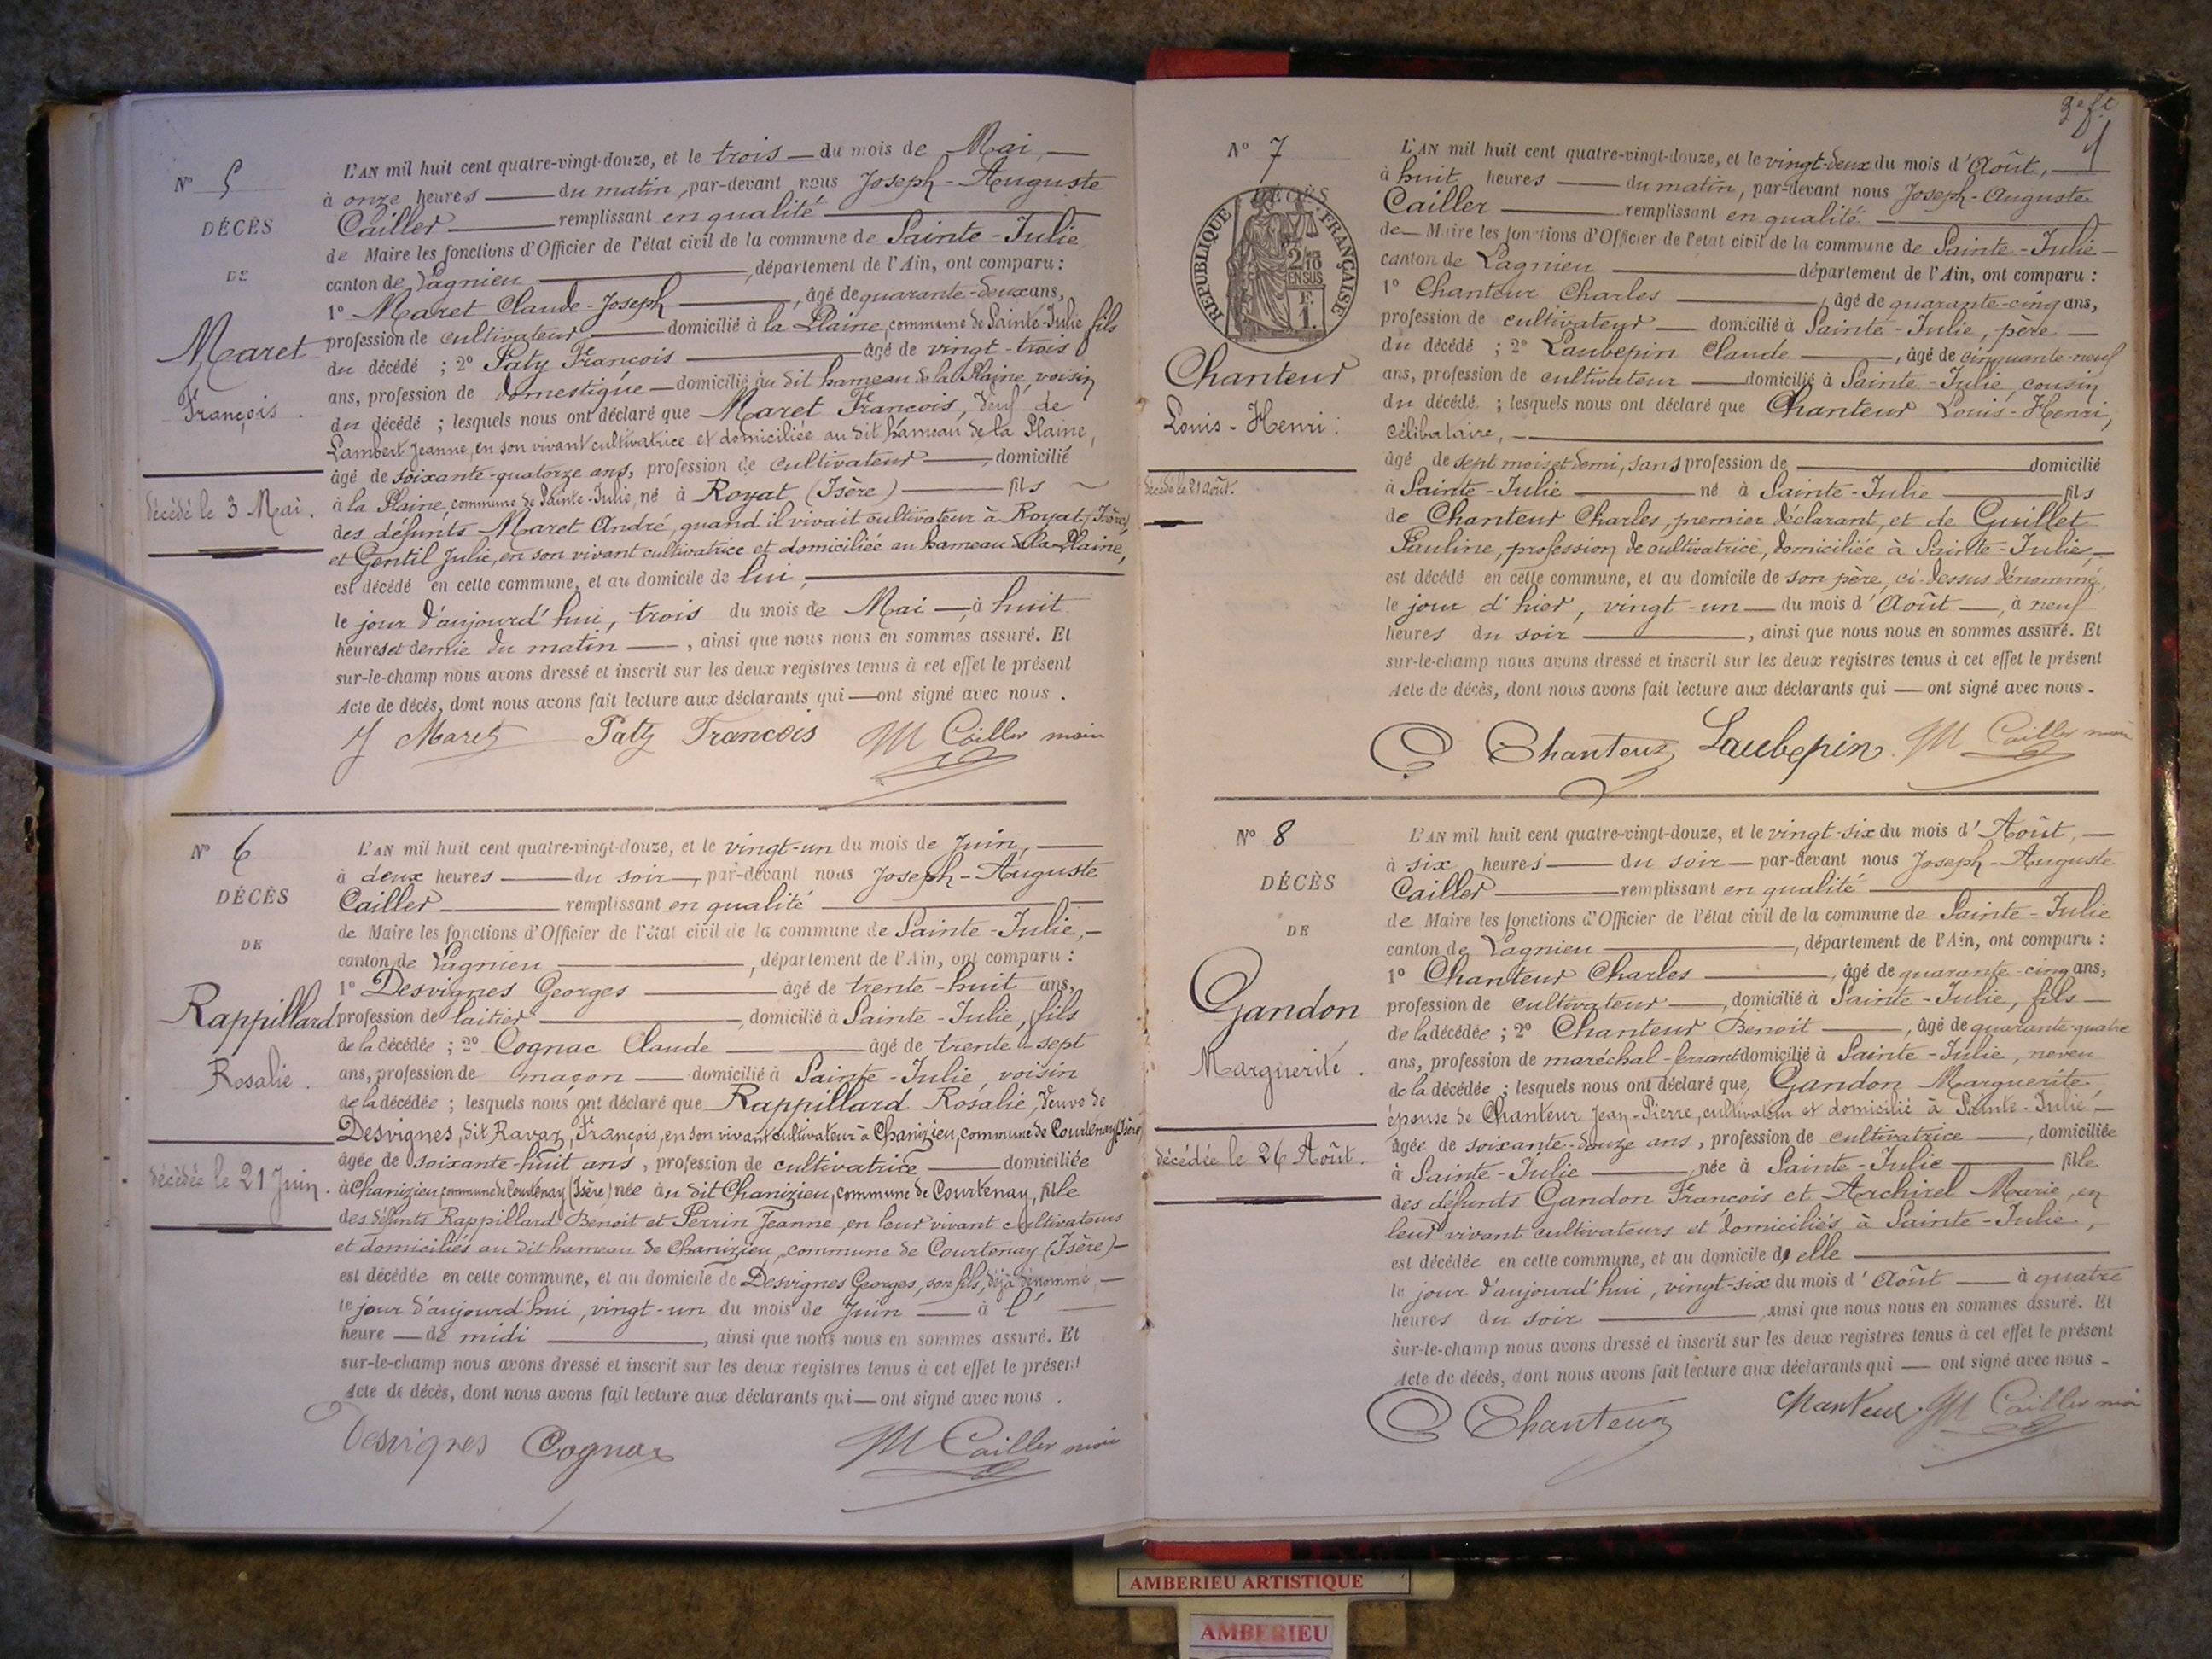 N° 5
DÉCÈS
DE
Maret
François.
décédé le 3 Mai.
L'AN mil huit cent quatre-vingt-douze, et le trois — du mois de Mai —
à onze heures — du matin, par-devant nous Joseph-Auguste
Cailler — remplissant en qualité —
de Maire les fonctions d'Officier de l'état civil de la commune de Sainte-Julie
canton de Lagnieu —, département de l'Ain, ont comparu :
1° Maret Claude-Joseph —, âgé de quarante-deux ans,
profession de cultivateur — domicilié à la Plaine, commune de Sainte-Julie fils
du décédé ; 2° Paty François — âgé de vingt-trois
ans, profession de domestique — domicilié au dit hameau de la Plaine, voisin
du décédé ; lesquels nous ont déclaré que Maret François, veuf de
Lambert Jeanne, en son vivant cultivatrice et domiciliée au dit hameau de la Plaine,
âgé de soixante-quatorze ans, profession de cultivateur —, domicilié
à la Plaine, commune de Sainte-Julie, né à Royat (Isère) — fils —
des défunts Maret André, quand il vivait cultivateur à Royat, (Isère)
et Gentil Julie, en son vivant cultivatrice et domiciliée au hameau de la Plaine,
est décédé en cette commune, et au domicile de lui, —
le jour d'aujourd'hui, trois du mois de Mai —, à huit
heures et demie du matin —, ainsi que nous nous en sommes assuré. Et
sur-le-champ nous avons dressé et inscrit sur les deux registres tenus à cet effet le présent
Acte de décès, dont nous avons fait lecture aux déclarants qui — ont signé avec nous.
J Maret Paty Francois M Cailler maire
N° 6
DÉCÈS
DE
Rappillard
Rosalie.
décédée le 21 Juin.
L'AN mil huit cent quatre-vingt-douze, et le vingt-un du mois de Juin, —
à deux heures — du soir —, par-devant nous Joseph-Auguste
Cailler — remplissant en qualité —
de Maire les fonctions d'Officier de l'état civil de la commune de Sainte-Julie, —
canton de Lagnieu —, département de l'Ain, ont comparu :
1° Desvignes Georges — âgé de trente-huit ans,
profession de laitier —, domicilié à Sainte-Julie, fils
de la décédée ; 2° Cognac Claude — âgé de trente-sept
ans, profession de maçon — domicilié à Sainte-Julie, voisin
de la décédée ; lesquels nous ont déclaré que Rappillard Rosalie, veuve de
Desvignes, dit Ravaz, François, en son vivant cultivateur à Chanizieu, commune de Courtenay (Isère)
âgée de soixante-huit ans, profession de cultivatrice — domiciliée
à Chanizieu, commune de Courtenay (Isère) née au dit Chanizieu, commune de Courtenay, fille
des défunts Rappillard Benoit et Perrin Jeanne, en leur vivant cultivateurs
et domiciliés au dit hameau de Chanizieu, commune de Courtenay (Isère) —
est décédée en cette commune, et au domicile de Desvignes Georges, son fils, déjà dénommé, —
le jour d'aujourd'hui, vingt-un du mois de Juin — à l' —
heure — de midi —, ainsi que nous nous en sommes assuré. Et
sur-le-champ nous avons dressé et inscrit sur les deux registres tenus à cet effet le présent
Acte de décès, dont nous avons fait lecture aux déclarants qui — ont signé avec nous.
Desvignes Cognac M Cailler maire
N° 7
DÉCÈS
REPUBLIQUE FRANÇAISE
2/10
EN SUS
F.
1.
Chanteur
Louis-Henri.
décédé le 21 août.
L'AN mil huit cent quatre-vingt-douze, et le vingt-deux du mois d'Août, —
à huit heures — du matin, par-devant nous Joseph-Auguste
Cailler — remplissant en qualité —
de — Maire les fonctions d'Officier de l'état civil de la commune de Sainte-Julie —
canton de Lagnieu — département de l'Ain, ont comparu :
1° Chanteur Charles —, âgé de quarante-cinq ans,
profession de cultivateur — domicilié à Sainte-Julie, père —
du décédé ; 2° Laubepin Claude —, âgé de cinquante-neuf
ans, profession de cultivateur — domicilié à Sainte-Julie, cousin
du décédé ; lesquels nous ont déclaré que Chanteur Louis-Henri,
célibataire, —
âgé de sept mois et demi, sans profession de — domicilié
à Sainte-Julie — né à Sainte-Julie — fils
de Chanteur Charles, premier déclarant, et de Guillet
Pauline, profession de cultivatrice, domiciliée à Sainte-Julie, —
est décédé en cette commune, et au domicile de son père, ci-dessus dénommé,
le jour d'hier, vingt-un — du mois d'Août —, à neuf
heures du soir —, ainsi que nous nous en sommes assuré. Et
sur-le-champ nous avons dressé et inscrit sur les deux registres tenus à cet effet le présent
Acte de décès, dont nous avons fait lecture aux déclarants qui — ont signé avec nous.
C Chanteur Laubepin. M Cailler maire
N° 8
DÉCÈS
DE
Gandon
Marguerite.
décédée le 26 Août.
L'AN mil huit cent quatre-vingt-douze, et le vingt-six du mois d'Août, —
à six heures — du soir — par-devant nous Joseph-Auguste
Cailler — remplissant en qualité —
de Maire les fonctions d'Officier de l'état civil de la commune de Sainte-Julie
canton de Lagnieu —, département de l'Ain, ont comparu :
1° Chanteur Charles —, âgé de quarante-cinq ans,
profession de cultivateur —, domicilié à Sainte-Julie, fils —
de la décédée ; 2° Chanteur Benoit —, âgé de quarante-quatre
ans, profession de maréchal-ferrant domicilié à Sainte-Julie, neveu
de la décédée ; lesquels nous ont déclaré que Gandon Marguerite,
épouse de Chanteur Jean-Pierre, cultivateur et domicilié à Sainte-Julie —
âgée de soixante-douze ans, profession de cultivatrice —, domiciliée
à Sainte-Julie —, née à Sainte-Julie — fille
des défunts Gandon François et Archirel Marie, en
leur vivant cultivateurs et domiciliés à Sainte-Julie,
est décédée en cette commune, et au domicile d'elle —
le jour d'aujourd'hui, vingt-six du mois d'Août — à quatre
heures du soir — ainsi que nous nous en sommes assuré. Et
sur-le-champ nous avons dressé et inscrit sur les deux registres tenus à cet effet le présent
Acte de décès, dont nous avons fait lecture aux déclarants qui — ont signé avec nous.
C Chanteur Chanteur M Cailler maire
AMBERIEU ARTISTIQUE
AMBERIEU